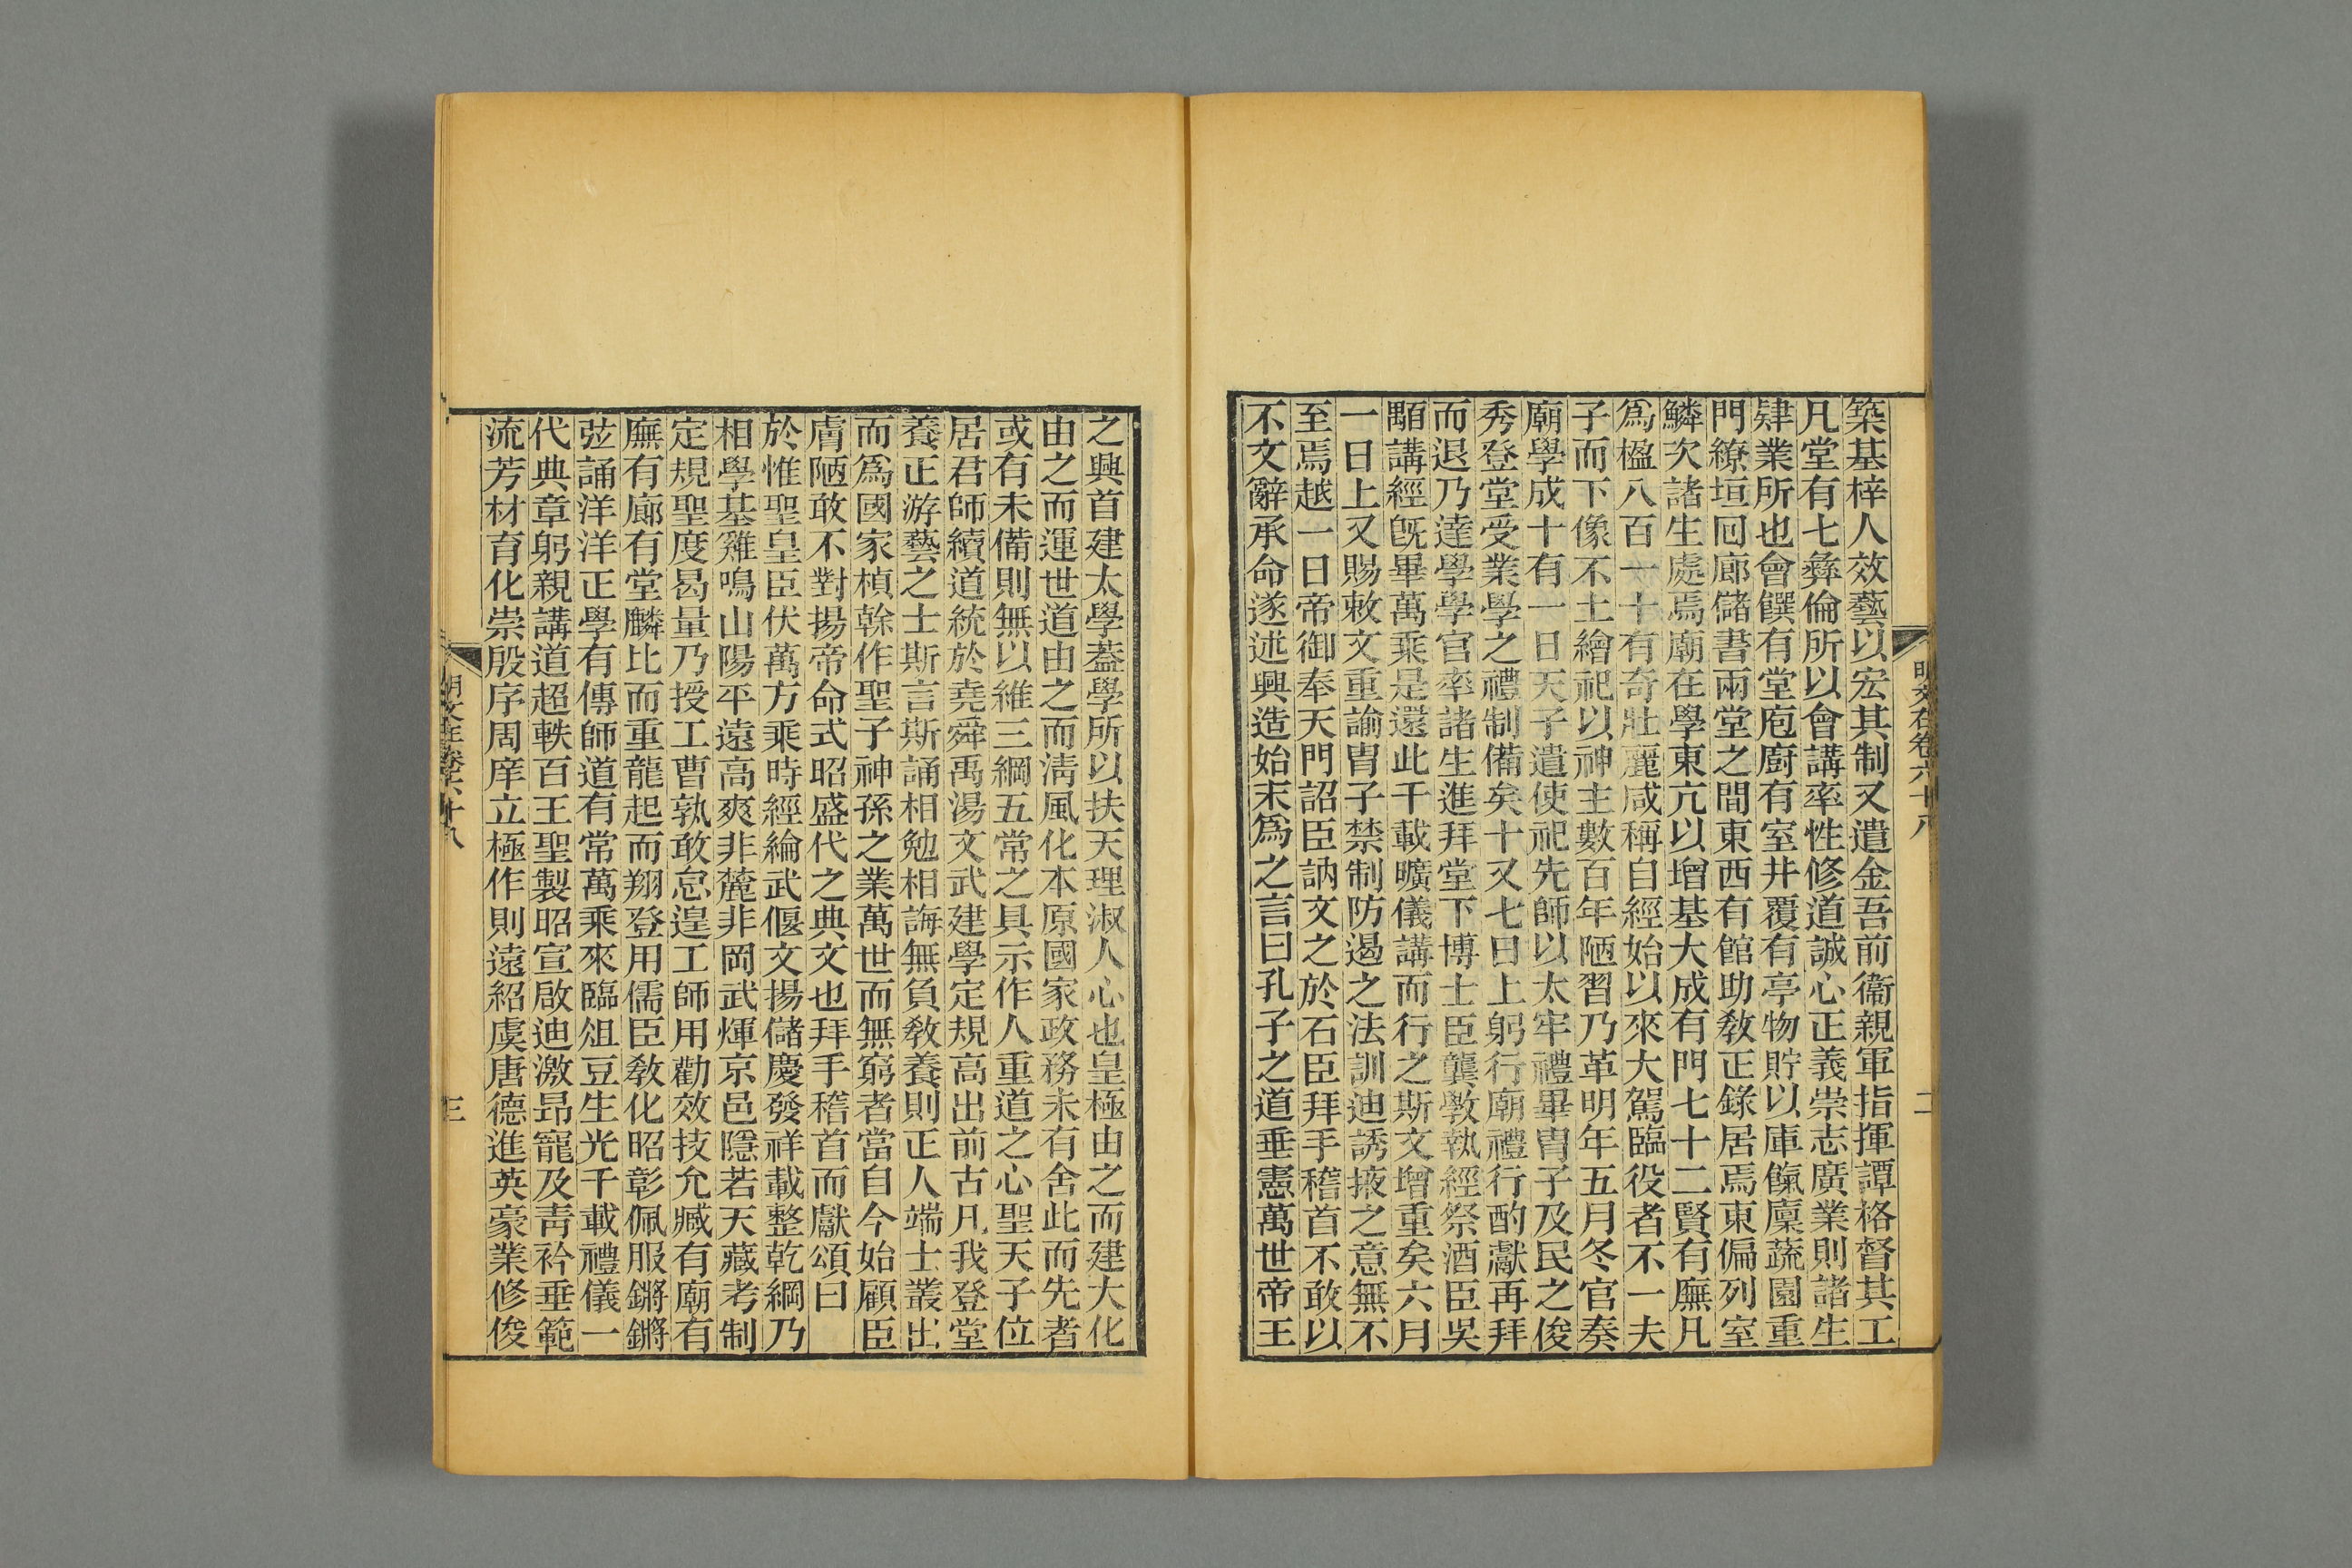 築基梓人效藝以宏其制又遣金吾前衞親軍指揮譚格督其工
凡堂有七彝倫所以會講率性修道誠心正義崇志廣業則諸生
肄業所也會饌有堂庖廚有室井覆有亭物貯以庫餼廩蔬園重
門繚垣回廊儲書兩堂之間東西有館助敎正錄居焉東偏列室
鱗次諸生處焉廟在學東亢以增基大成有門七十二賢有廡凡
爲楹八百一十有奇壯麗咸稱自經始以來大駕臨役者不一夫
子而下像不土繪祀以神主數百年陋習乃革明年五月冬官奏
廟學成十有一日天子遣使祀先師以太牢禮畢冑子及民之俊
秀登堂受業學之禮制備矣十又七日上躬行廟禮行酌獻再拜
而退乃達學學官率諸生進拜堂下博士臣龔斆執經祭酒臣吳
顒講經旣畢萬乘是還此千載曠儀講而行之斯文增重矣六月
一日上又賜敕文重諭冑子禁制防遏之法訓迪誘掖之意無不
至焉越一日帝御奉天門詔臣訥文之於石臣拜手稽首不敢以
不文辭承命遂述興造始末爲之言曰孔子之道垂憲萬世帝王
明文在卷六十八
二
之興首建太學蓋學所以扶天理淑人心也皇極由之而建大化
由之而運世道由之而淸風化本原國家政務未有舍此而先者
或有未備則無以維三綱五常之具示作人重道之心聖天子位
居君師續道統於堯舜禹湯文武建學定規高出前古凡我登堂
養正游藝之士斯言斯誦相勉相誨無負敎養則正人端士叢出
而爲國家楨榦作聖子神孫之業萬世而無窮者當自今始顧臣
膚陋敢不對揚帝命式昭盛代之典文也拜手稽首而獻頌曰
於惟聖皇臣伏萬方乘時經綸武偃文揚儲慶發祥載整乾綱乃
相學基雞鳴山陽平遠高爽非麓非岡武煇京邑隱若天藏考制
定規聖度曷量乃授工曹孰敢怠遑工師用勸效技允臧有廟有
廡有廊有堂麟比而重龍起而翔登用儒臣敎化昭彰佩服鏘鏘
弦誦洋洋正學有傳師道有常萬乘來臨俎豆生光千載禮儀一
代典章躬親講道超軼百王聖製昭宣啟迪激昂寵及靑衿垂範
流芳材育化崇殷序周庠立極作則遠紹虞唐德進英豪業修俊
明文在卷六十八
三